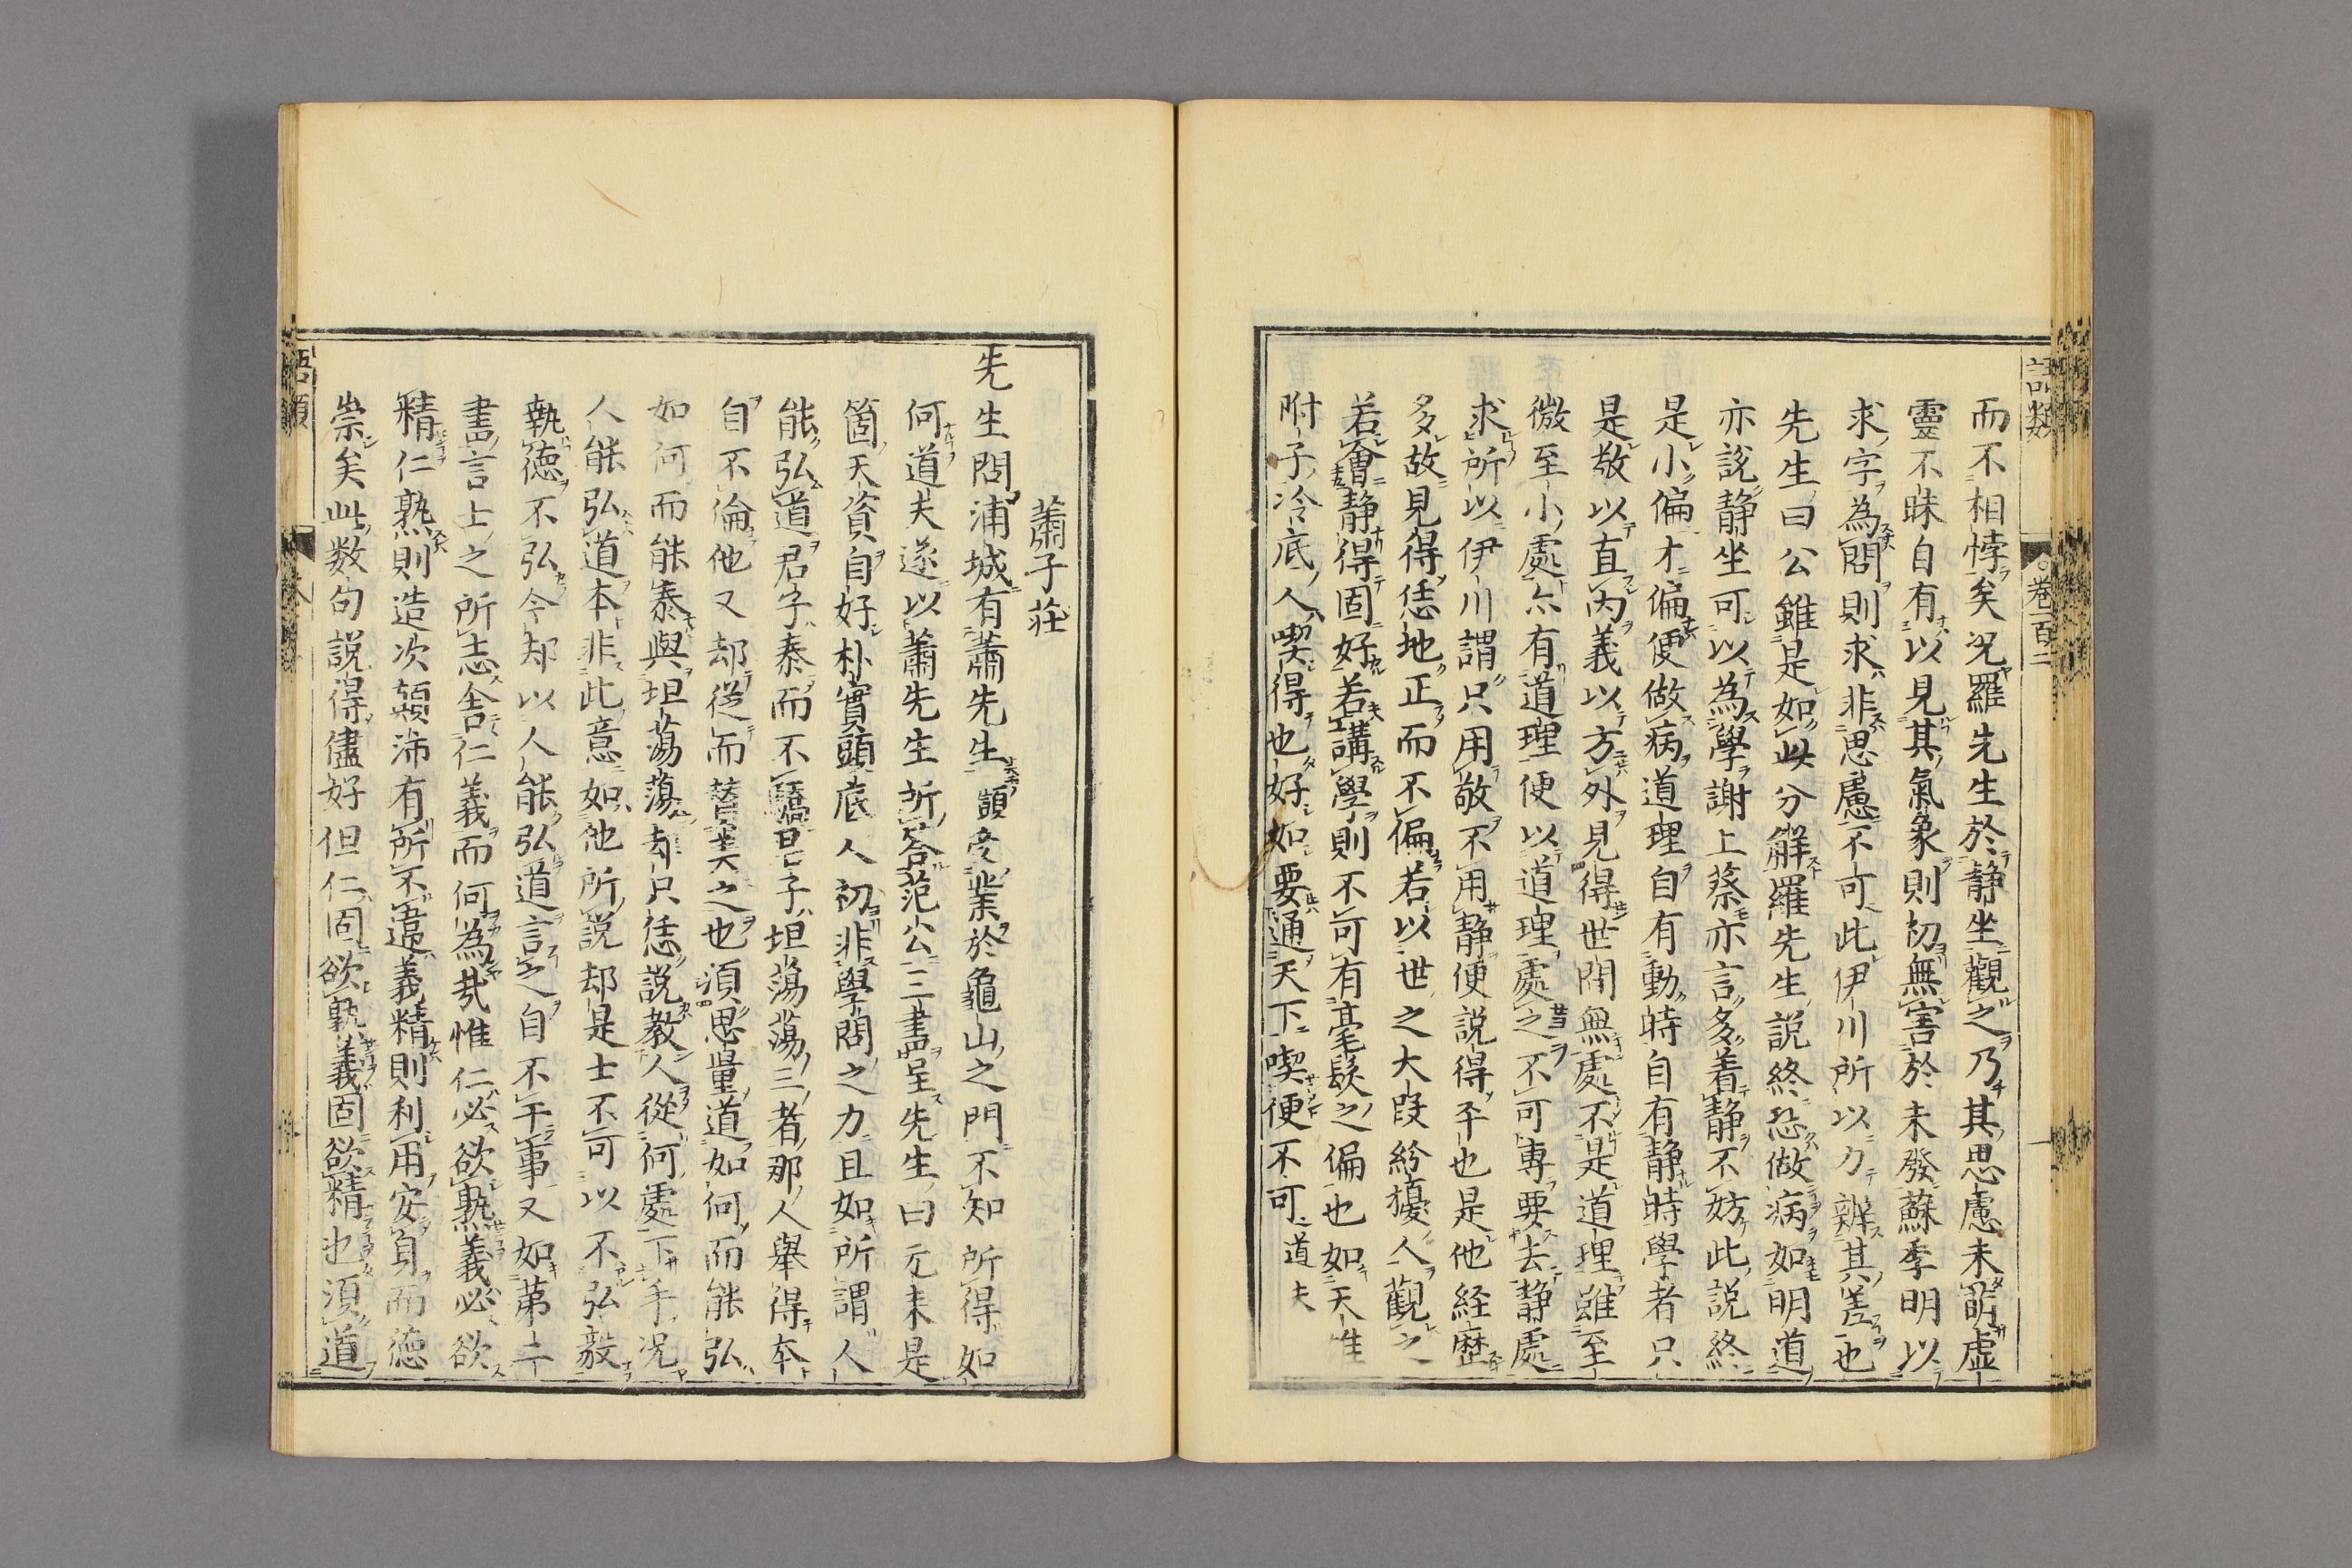 語類
卷百二
一
而不相悖矣況羅先生於静坐觀之乃其思慮未萌虚
靈不昧自有以見其氣象則初無害於未發蘇季明以
求字為問則求非思慮不可此伊川所以力辨其差也
先生曰公雖是如此分解羅先生說終恐做病如明道
亦說静坐可以為學謝上蔡亦言多着静不妨此說終
是小偏才偏便做病道理自有動時自有静時學者只
是敬以直内義以方外見得世間無處不是道理雖至
微至小處亦有道理便以道理處之不可專要去静處
求所以伊川謂只用敬不用静便說得平也是他経歷
多故見得恁地正而不偏若以世之大段紛擾人觀之
若會静得固好若講學則不可有毫髮之偏也如天雄
附子冷底人喫得也好如要通天下喫便不可道夫
蕭子荘
先生問浦城有蕭先生顗受業於龜山之門不知所得如
何道夫遂以蕭先生所答范公三書呈先生曰元来是
箇天資自好朴實頭底人初非學問之力且如所謂人
能弘道君子泰而不驕君子坦蕩蕩三者那人舉得本
自不倫他又却從而替塞之也須思量道如何而能弘
如何而能泰與坦蕩蕩却只恁說教人從何處下手況
人能弘道本非此意如他所說却是士不可以不弘毅
執徳不弘今却以人能弘道言之自不干事又如第二
書言士之所志舎仁義而何為哉惟仁必欲熟義必欲
精仁熟則造次顛沛有所不違義精則利用安身而徳
崇矣此数句說得儘好但仁固欲熟義固欲精也須道
語類